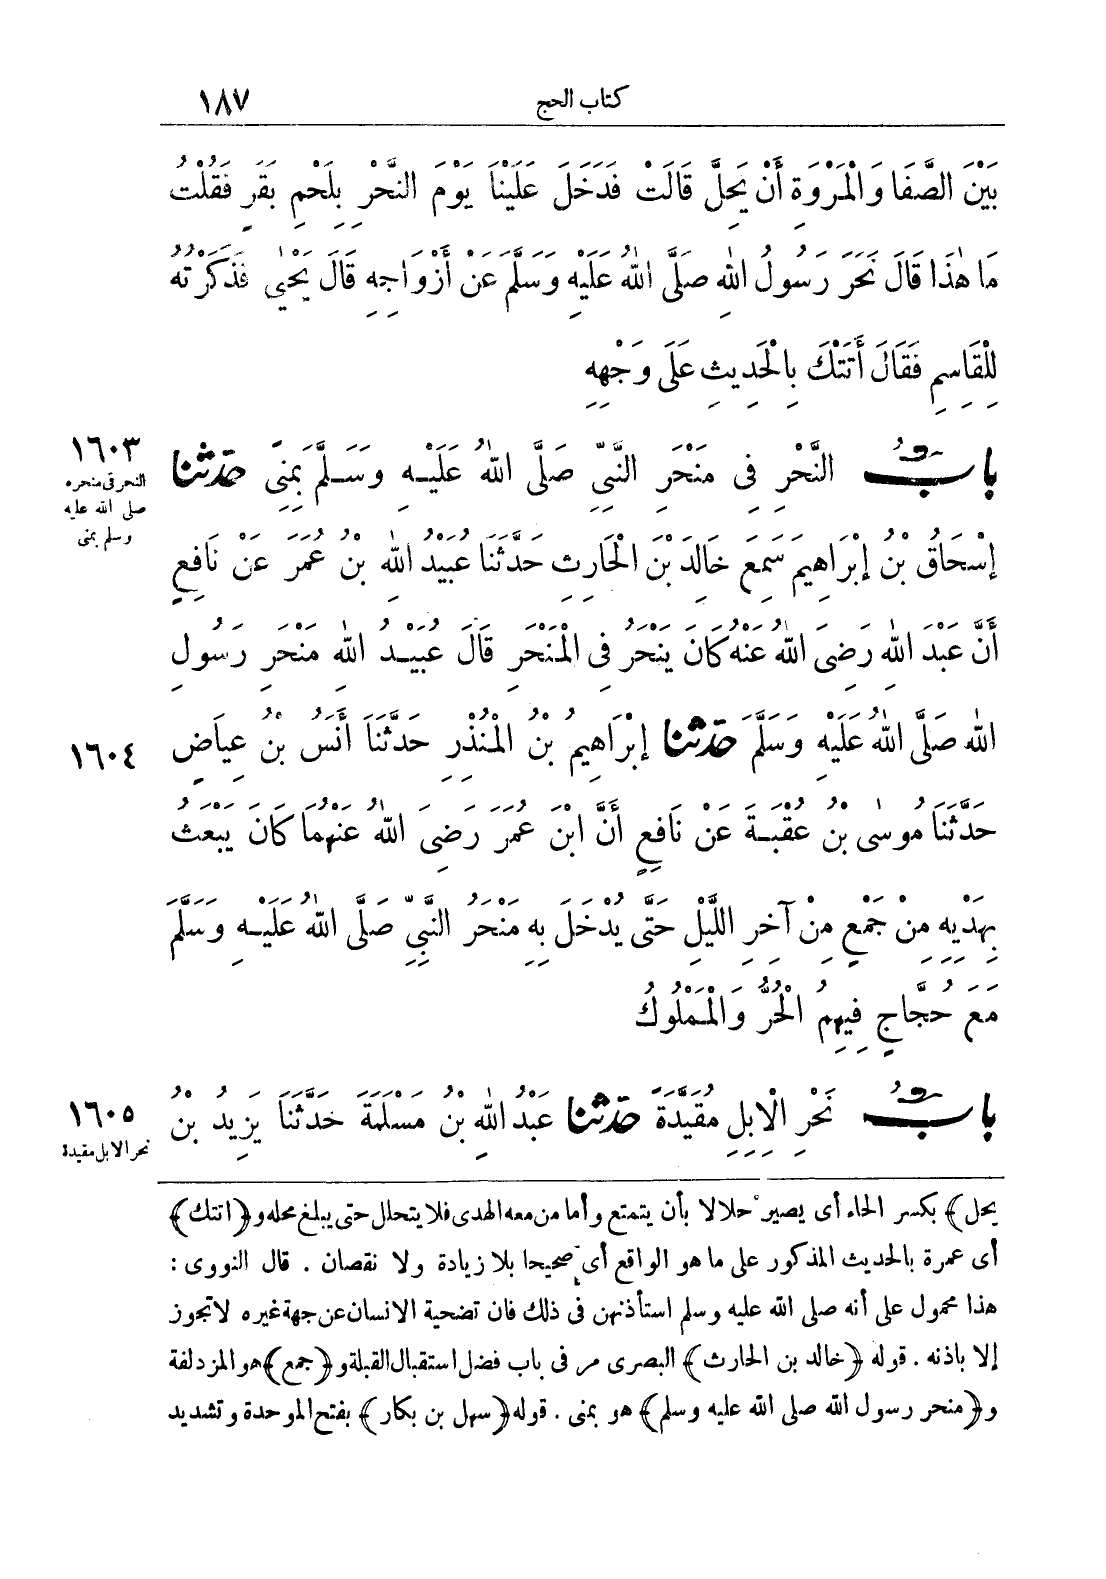 كتاب الحج
١٨٧
بَيْنَ الصَّفَا وَالْمَرْوَةِ أَنْ يَحِلَّ قَالَتْ فَدَخَلَ عَلَيْنَا يَوْمَ النَّحْرِ بِلَحْمِ بَقَرٍ فَقُلْتُ
مَا هٰذَا قَالَ نَحَرَ رَسُولُ اللهِ صَلَّى اللهُ عَلَيْهِ وَسَلَّمَ عَنْ أَزْوَاجِهِ قَالَ يَحْيٰى فَذَكَرْتُهُ
لِلْقَاسِمِ فَقَالَ أَتَتْكَ بِالْحَدِيثِ عَلَى وَجْهِهِ
١٦٠٣
النحر فى منحره
صلى الله عليه
وسلم بمنى
بَابُ النَّحْرِ فِى مَنْحَرِ النَّبِيِّ صَلَّى اللهُ عَلَيْهِ وَسَلَّمَ بِمِنًى حَدَّثَنَا
إِسْحَاقُ بْنُ إِبْرَاهِيمَ سَمِعَ خَالِدَ بْنَ الْحَارِثِ حَدَّثَنَا عُبَيْدُ اللهِ بْنُ عُمَرَ عَنْ نَافِعٍ
أَنَّ عَبْدَ اللهِ رَضِىَ اللهُ عَنْهُ كَانَ يَنْحَرُ فِى الْمَنْحَرِ قَالَ عُبَيْدُ اللهِ مَنْحَرِ رَسُولِ
اللهِ صَلَّى اللهُ عَلَيْهِ وَسَلَّمَ حَدَّثَنَا إِبْرَاهِيمُ بْنُ الْمُنْذِرِ حَدَّثَنَا أَنَسُ بْنُ عِيَاضٍ
١٦٠٤
حَدَّثَنَا مُوسَى بْنُ عُقْبَةَ عَنْ نَافِعٍ أَنَّ ابْنَ عُمَرَ رَضِىَ اللهُ عَنْهُمَا كَانَ يَبْعَثُ
بِهَدْيِهِ مِنْ جَمْعٍ مِنْ آخِرِ اللَّيْلِ حَتَّى يُدْخَلَ بِهِ مَنْحَرُ النَّبِيِّ صَلَّى اللهُ عَلَيْهِ وَسَلَّمَ
مَعَ حُجَّاجٍ فِيهِمُ الْحُرُّ وَالْمَمْلُوكُ
١٦٠٥
نحر الابل مقيدة
بَابُ نَحْرِ الْإِبِلِ مُقَيَّدَةً حَدَّثَنَا عَبْدُ اللهِ بْنُ مَسْلَمَةَ حَدَّثَنَا يَزِيدُ بْنُ
يحل﴾ بكسر الحاء أى يصير حلالا بأن يتمتع وأما من معه الهدى فلا يتحلل حتى يبلغ محله و﴿اتتك﴾
أى عمرة بالحديث المذكور على ما هو الواقع أى صحيحا بلا زيادة ولا نقصان . قال النووى :
هذا محمول على أنه صلى الله عليه وسلم استأذنهن فى ذلك فان تضحية الانسان عن جهة غيره لا تجوز
إلا باذنه . قوله ﴿خالد بن الحارث﴾ البصرى مر فى باب فضل استقبال القبلة و﴿جمع﴾ هو المزدلفة
و﴿منحر رسول الله صلى الله عليه وسلم﴾ هو بمنى . قوله ﴿سهل بن بكار﴾ بفتح الموحدة وتشديد